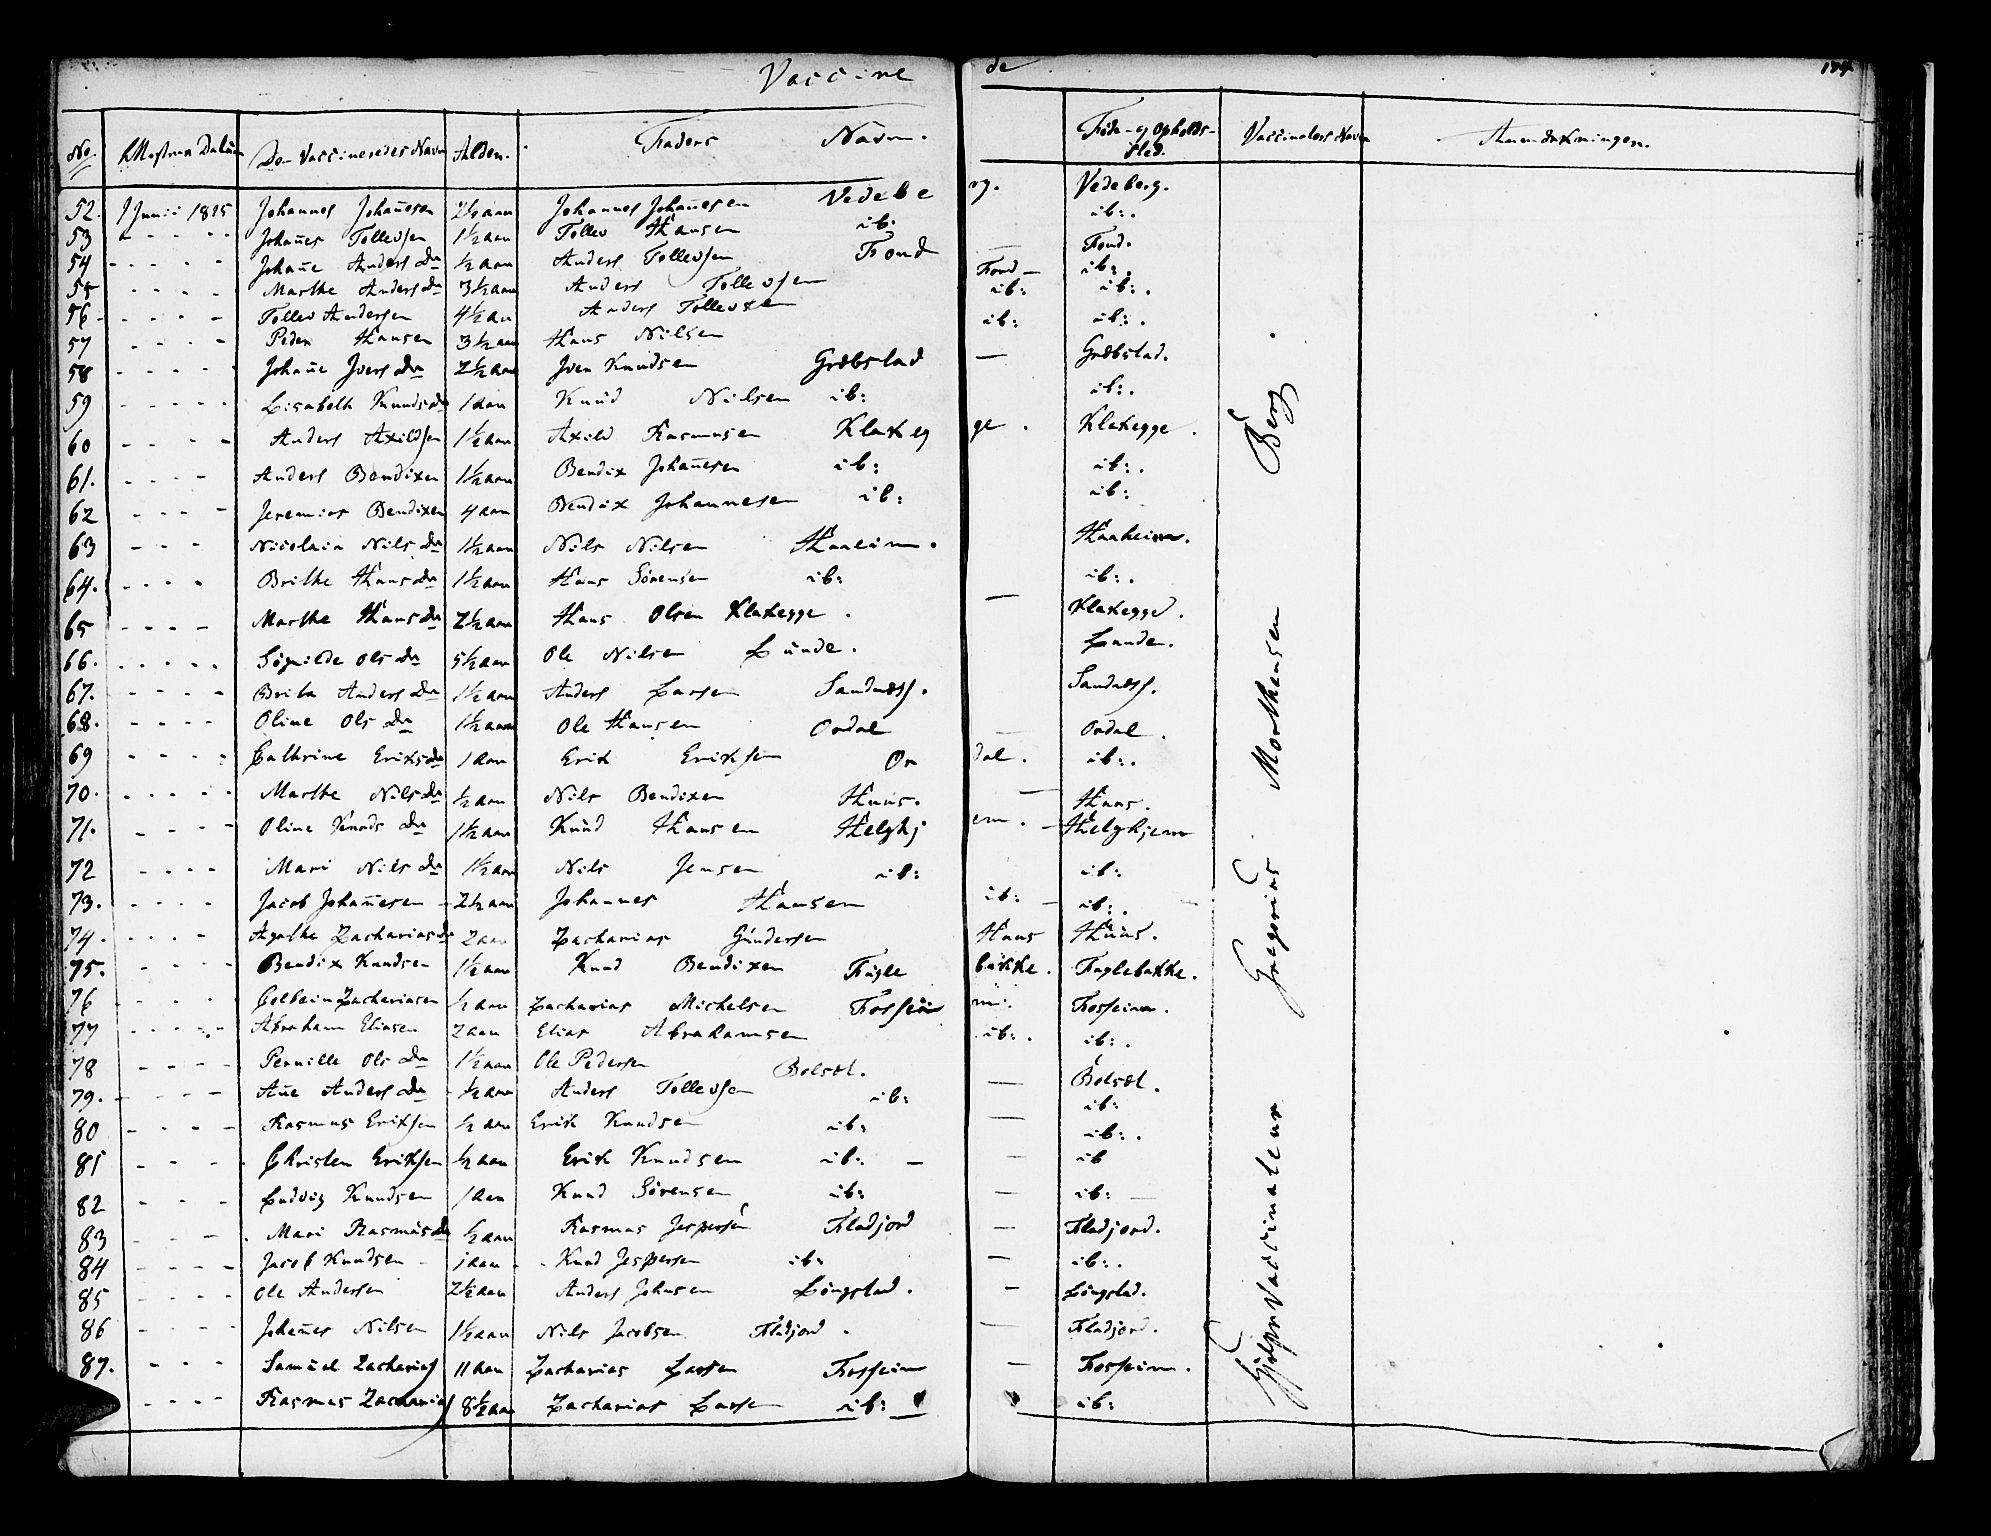 Vaccine de
No. Attestens Datum De Vaccineredes Navn Alder. Faders Navn. Føde- og Opholds- Sted. Vaccinators Navn Anmærkninger.
52. 1 Junii 1815 Johannes Johan̄esen 2½ aar Johannes Johan̄esen Vedeberg. Vedeberg.
53 - - - - Johan̄es Tollevsen 1½ aar Tollev Hansen ib: ib:.
54 - - - - Johan̄e Anders Dr ½ aar Anders Tollevsen Fond — Fond.
55 - - - - Marthe Anders Dr 3½ aar Anders Tollevsen Fond — ib:.
56 - - - - Tollev Andersen 4½ aar Anders Tollevsen ib: ib:.
57 - - - - Peder Hansen 3½ aar Hans Nilsen ib: ib:.
58 - - - - Johan̄e Ivers Dr 2½ aar Iver Knudsen Græbstad — Græbstad.
59 - - - - Lisabeth Knuds Dr 1 aar Knud Nilsen ib: ib:.
60 - - - - Anders Axildsen 1½ aar Axild Rasmusen Klakegge. Klakegge.
61. - - - - Anders Bendixen 1½ aar Bendix Johan̄esen ib: ib:.
62 - - - - Jeremias Bendixen 4 aar Bendix Johannesen ib: ib:
63 - - - Nicolaia Nils Dr 1½ aar Nils Nilsen Haaeim. Haaheim.
64. - - - - Brithe Hans Dr 1½ aar Hans Sørensen ib: ib:.
65 - - - - Marthe Hans Dr 2½ aar Hans Olsen Klakegge. — Klakegge.
66. - - - - Signilde Ols Dr 5½ aar Ole Nilsen Lunde. Lunde.
67. - - - - Brita Anders Dr 1½ aar Anders Larsen Sandnæss. Sandnæss.
68. - - - - Oline Ols Dr 1½ aar Ole Hansen Ordal — Ordal.
69 - - - - Cathrine Eriks Dr 1 aar Erik Eriksen Ordal. ib:.
70. - - - - Marthe Nils Dr ½ aar Nils Bendixen Huus. — Huus.
71. - - - - Oline Knuds Dr 1½ aar Knud Hansen Helghjem. — Helghjem
72 - - - - Mari Nils Dr 1½ aar Nils Jensen ib: ib:
73. - - - - Jacob Johan̄esen 2½ aar Johannes Hansen ib: — ib:.
74. - - - - Agathe Zacharias Dr 2 aar Zacharias Gundersen Huus Huus.
75. - - - - Bendix Knudsen 1½ aar Knud Bendixen Fuglebakke. Fuglebakke.
76 - - - - Zachariasen ½ aar Zacharias Michelsen Fosseim. Fosseim.
77 - - - - Abraham Eliasen 2 aar Elias Abrahamsen ib:. ib:.
78 - - - - Pernille Ols Dr 1½ aar Ole Pedersen Bolsæt. Bolsæt.
79. - - - - An̄e Anders Dr ½ aar Anders Tollevsen ib: — ib:
80 - - - - Rasmus Eriksen ½ aar Erik Knudsen ib: — ib:.
81 - - - - Christen Eriksen ½ aar Erik Knudsen ib: — — ib
82 - - - Ludvig Knudsen 1 aar Knud Sørensen ib: — ib:
83 - - - Mari Rasmus Dr ½ aar Rasmus Jespersen Fladjord — Fladjord.
84 - - - - Jacob Knudsen 1 aar Knud Jespersen ib: — ib:.
85 - - - - Ole Andersen 2½ aar Anders Johnsen Løngstad. — Løngstad.
86 - - - - Johan̄es Nilsen 1½ aar Nils Jacobsen Fladjord. — Fladjord.
87. - - - Samuel Zacharias 11 aar Zacharias Larsen Fosseim — Fosseim.
- - - - Rasmus Zacharias 8½ aar Zacharias Larsen ib: ib:
Hjelpe Vaccinateur Gregorius Morthensen Berg